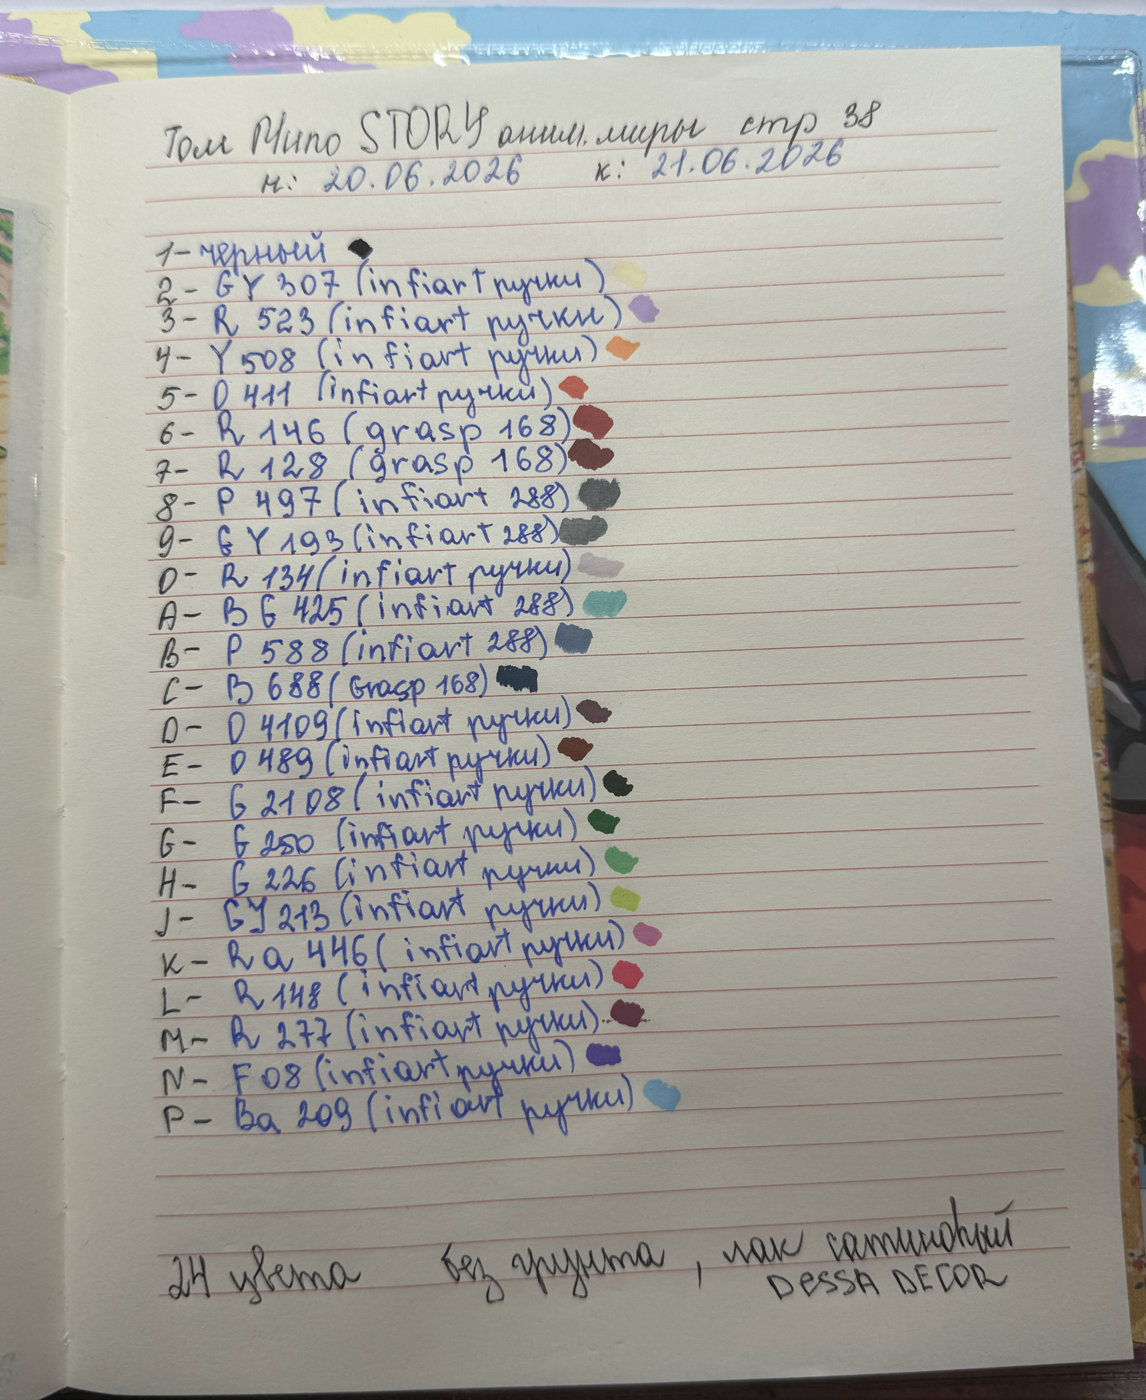 Том Мипо STORY аним. миры стр 38
н: 20.06.2026 к: 21.06.2026
1- черный
2- GY 307 (infiart ручки)
3- R 523 (infiart ручки)
4- Y 508 (infiart ручки)
5- O 411 (infiart ручки)
6- R 146 (grasp 168)
7- R 128 (grasp 168)
8- P 497 (infiart 288)
9- GY 193 (infiart 288)
0- R 134 (infiart ручки)
A- BG 425 (infiart 288)
B- P 588 (infiart 288)
C- B 688 (Grasp 168)
D- O 4109 (infiart ручки)
E- O 489 (infiart ручки)
F- G 2108 (infiart ручки)
G- G 250 (infiart ручки)
H- G 226 (infiart ручки)
J- GY 213 (infiart ручки)
K- Ra 446 (infiart ручки)
L- R 148 (infiart ручки)
M- R 277 (infiart ручки)
N- F 08 (infiart ручки)
P- Ba 209 (infiart ручки)
24 цвета без грунта, лак сатиновый
DESSA DECOR